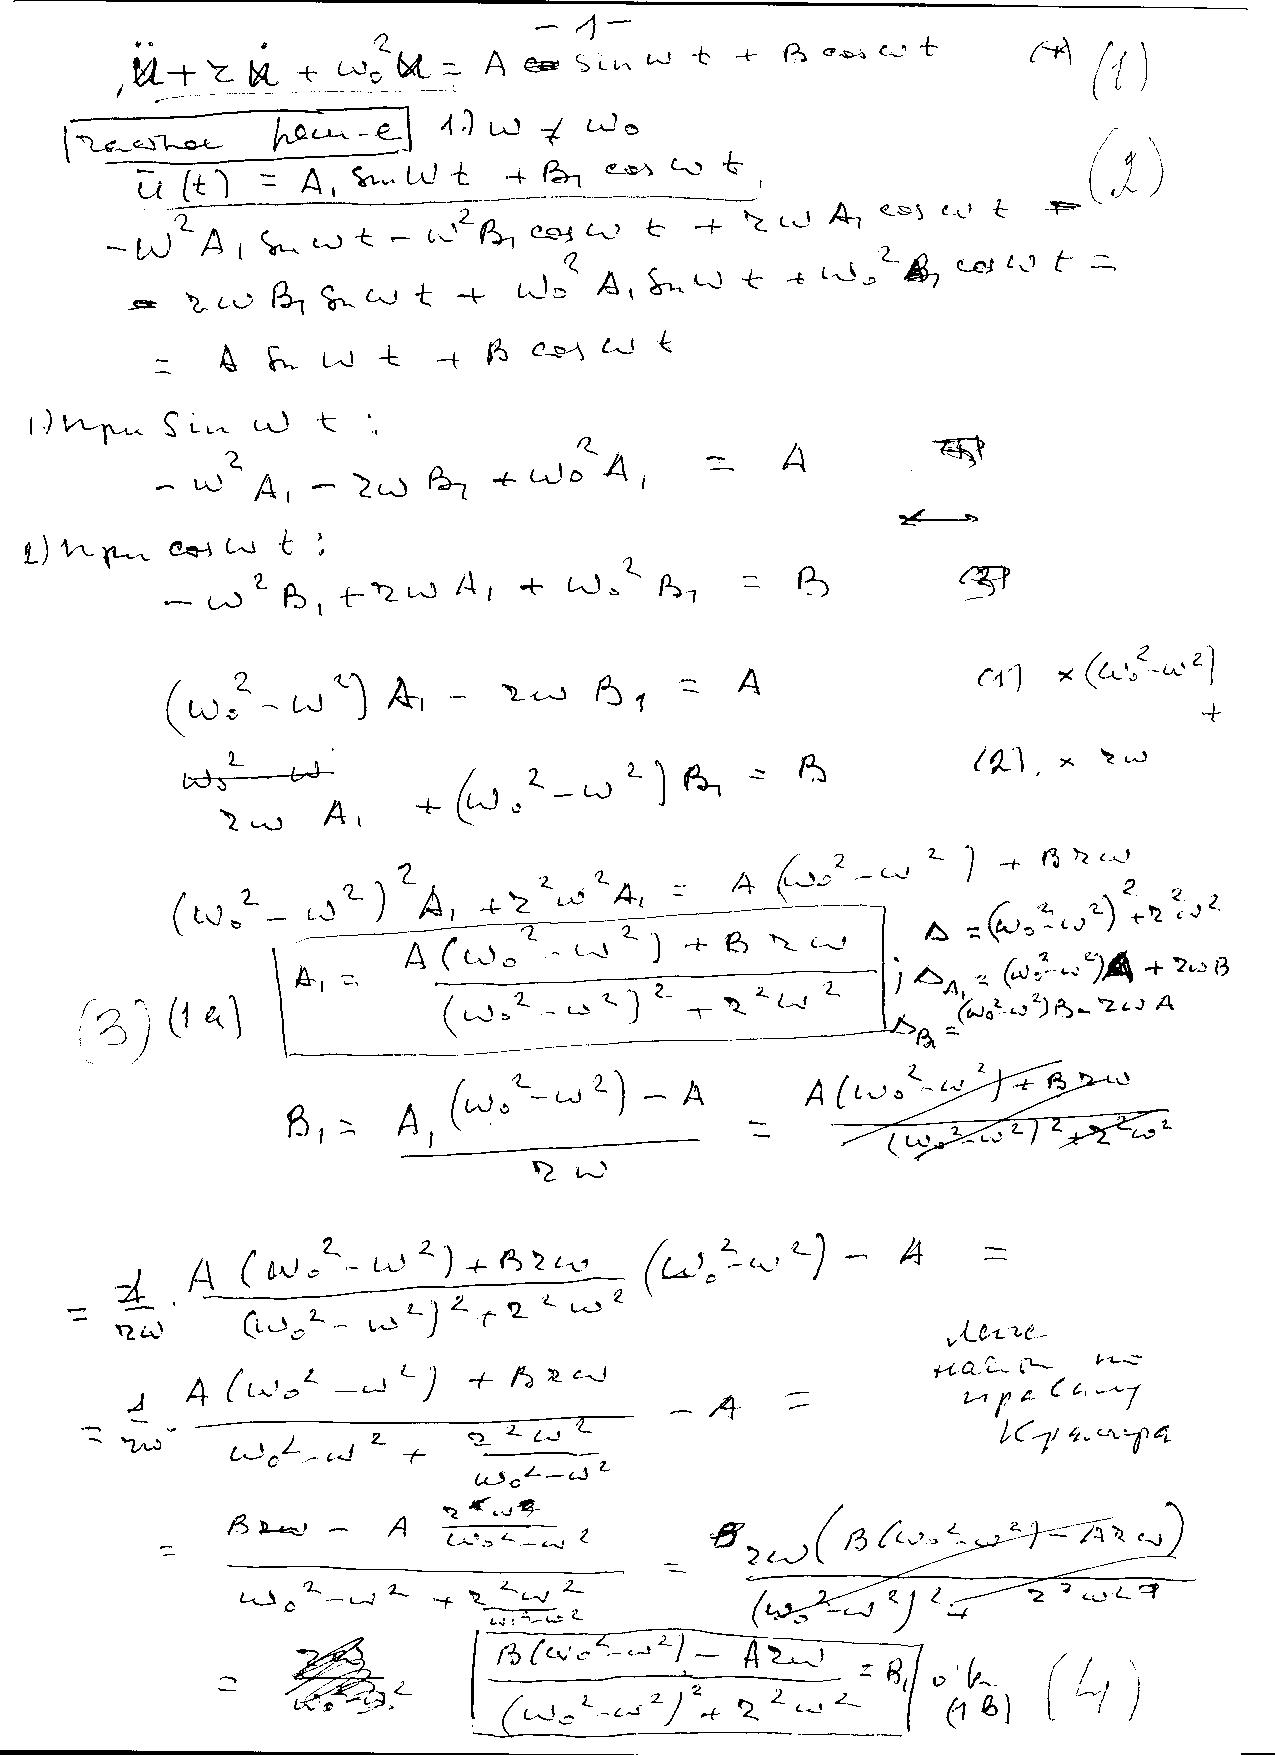 - 1 -
ü + r u̇ + ω₀² u = A sin ω t + B cos ω t (1)
частное реш-е 1.) ω ≠ ω₀
ū(t) = A₁ sin ω t + B₁ cos ω t, (2)
- ω² A₁ sin ω t - ω² B₁ cos ω t + r ω A₁ cos ω t -
- r ω B₁ sin ω t + ω₀² A₁ sin ω t + ω₀² B₁ cos ω t =
= A sin ω t + B cos ω t
1) при sin ω t :
- ω² A₁ - r ω B₁ + ω₀² A₁ = A
2) при cos ω t :
- ω² B₁ + r ω A₁ + ω₀² B₁ = B
(ω₀² - ω²) A₁ - r ω B₁ = A (1) × (ω₀² - ω²)
+
r ω A₁ + (ω₀² - ω²) B₁ = B (2). × r ω
(ω₀² - ω²)² A₁ + r² ω² A₁ = A (ω₀² - ω²) + B r ω
(3) (1a) A₁ = (A (ω₀² - ω²) + B r ω) / ((ω₀² - ω²)² + r² ω²) ; Δ = (ω₀² - ω²)² + r² ω²
Δ_A₁ = (ω₀² - ω²) A + r ω B
Δ_B₁ = (ω₀² - ω²) B - r ω A
B₁ = (A₁ (ω₀² - ω²) - A) / (r ω) = (A (ω₀² - ω²) + B r ω) / ((ω₀² - ω²)² + r² ω²)
= 1/(r ω) · (A (ω₀² - ω²) + B r ω) / ((ω₀² - ω²)² + r² ω²) (ω₀² - ω²) - A =
= 1/(r ω) · (A (ω₀² - ω²) + B r ω) / (ω₀² - ω² + r² ω² / (ω₀² - ω²)) - A =
Легче
найти по
правилу
Крамера
= (B r ω - A r ω / (ω₀² - ω²)) / (ω₀² - ω² + r² ω² / (ω₀² - ω²)) = r ω (B (ω₀² - ω²) - A r ω) / ((ω₀² - ω²)² + r² ω²)
= (B (ω₀² - ω²) - A r ω) / ((ω₀² - ω²)² + r² ω²) = B₁ ok (1B) (4)